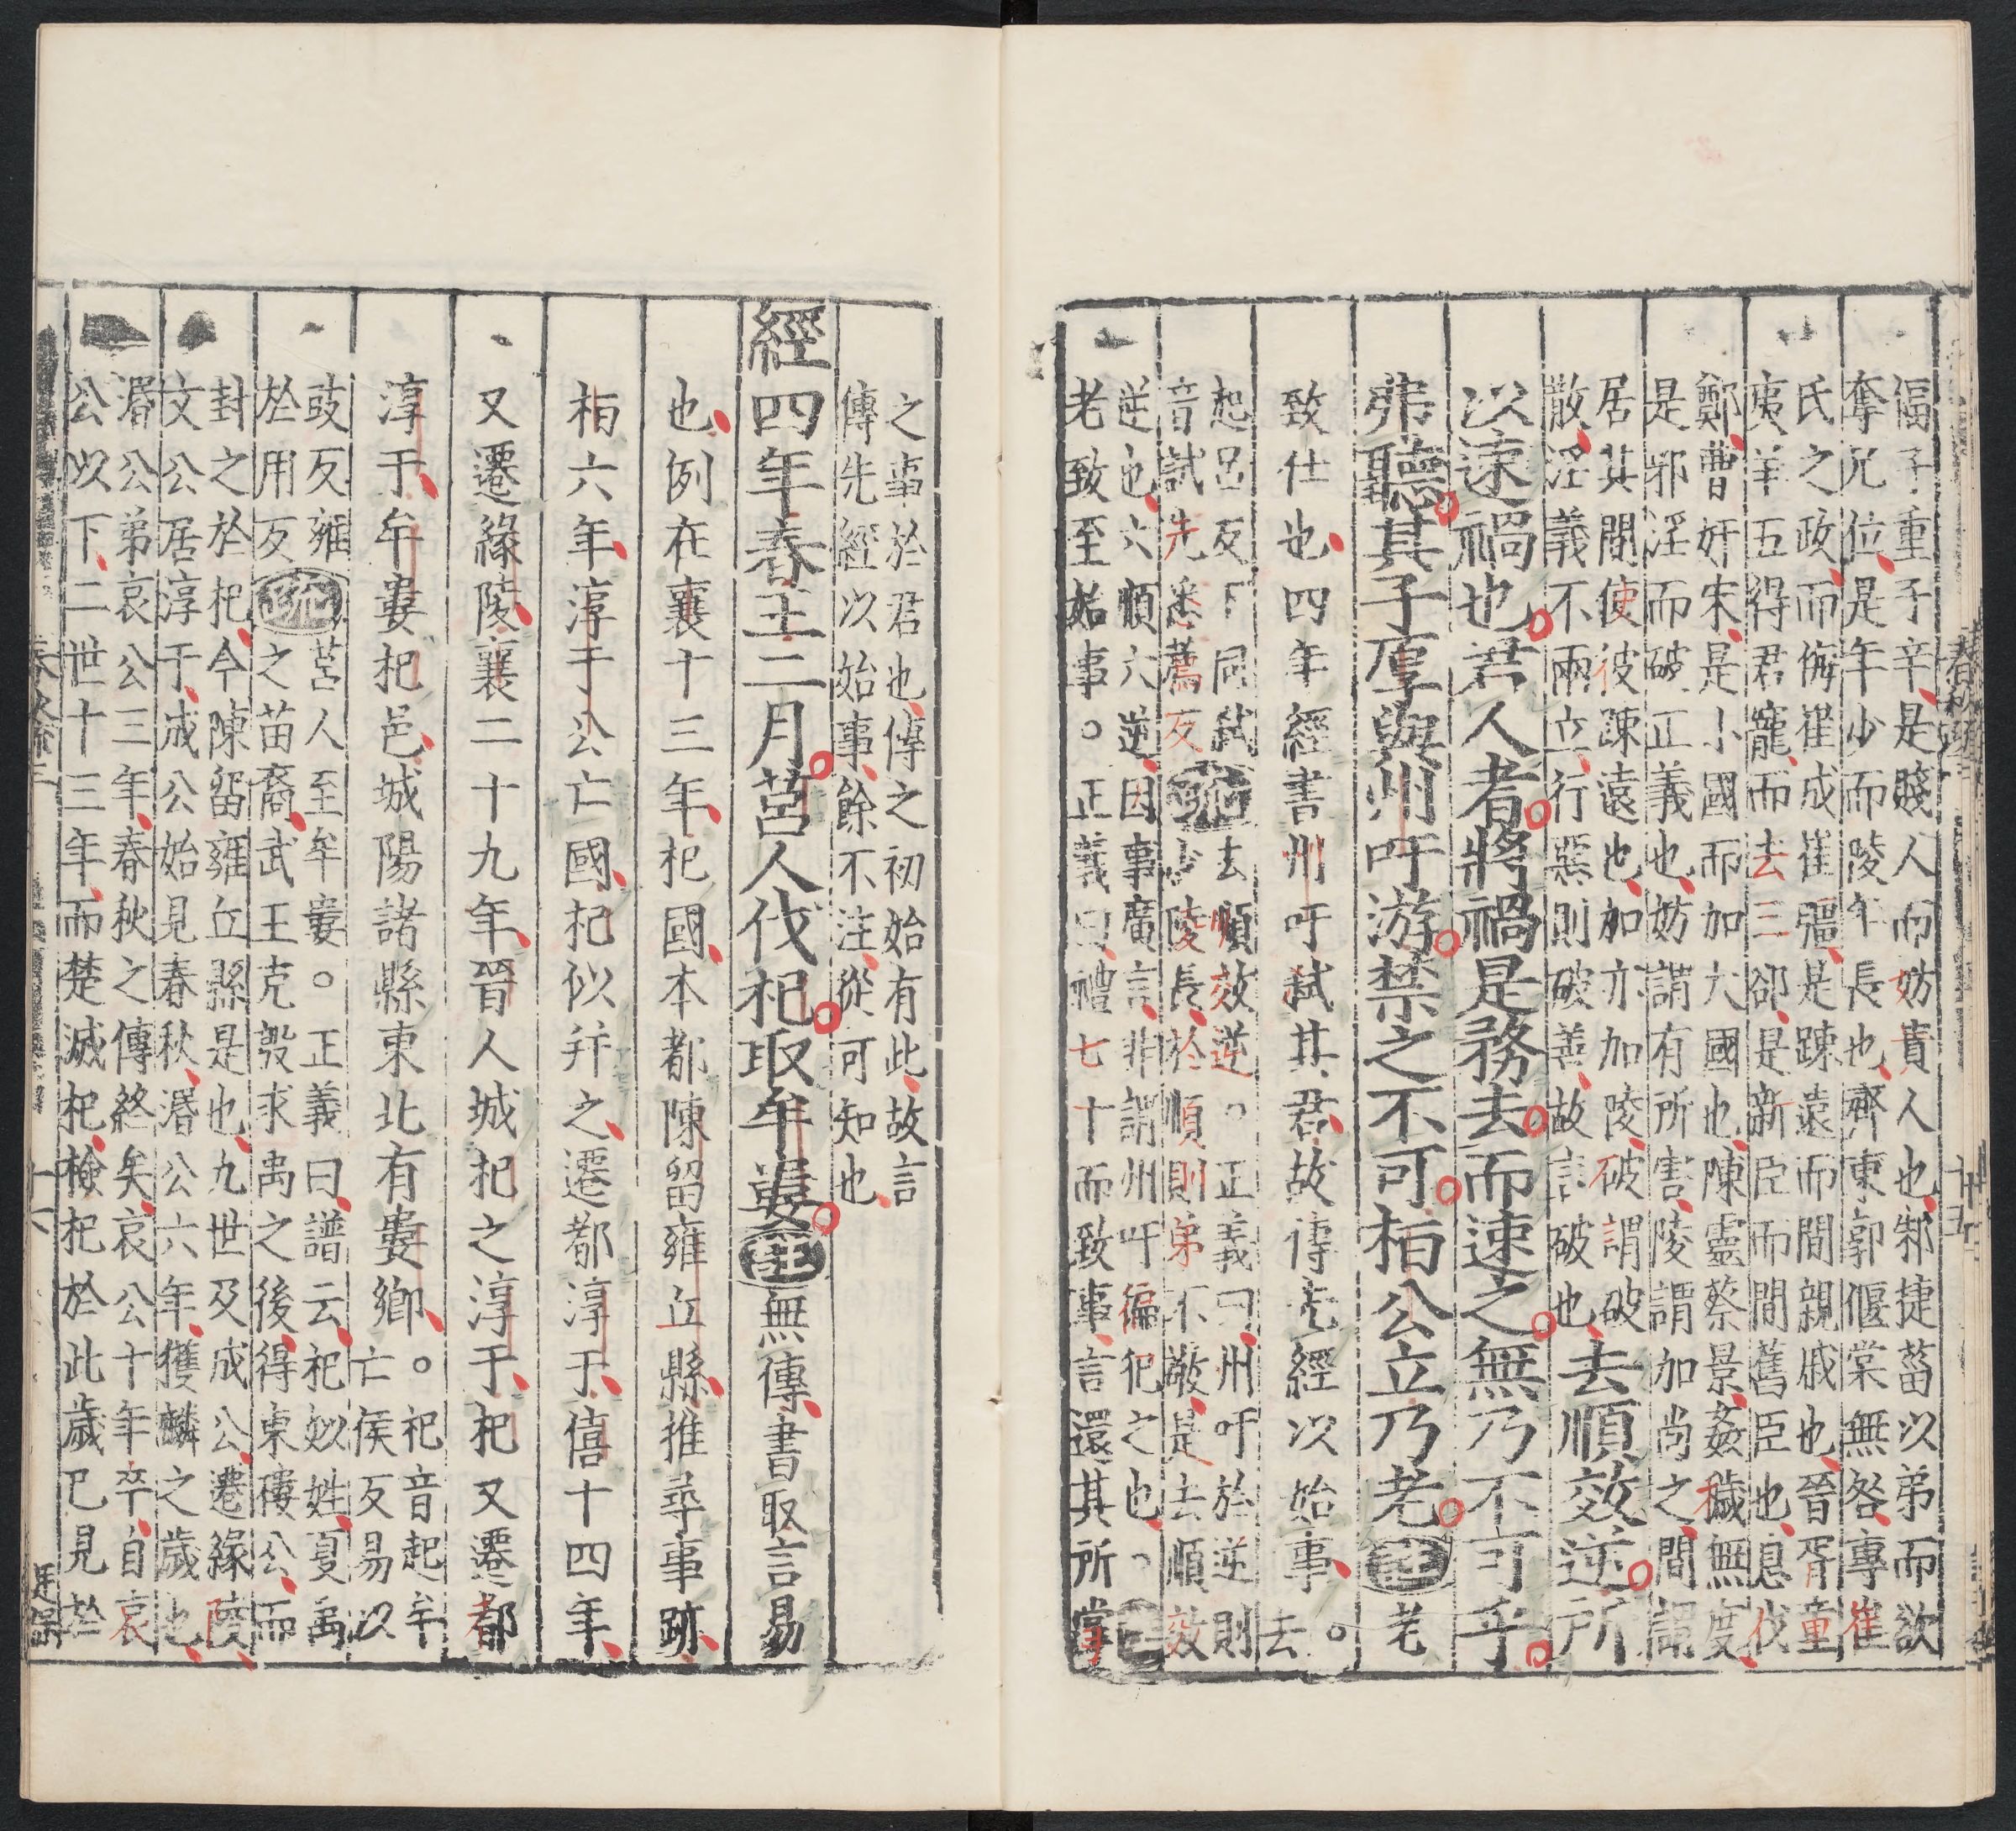 偪子重子辛是賤人而妨貴人也邾捷菑以弟而欲
奪兄位是年少而陵年長也齊東郭偃棠無咎專崔
氏之政而侮崔成崔彊是踈遠而間親戚也晉胥童
夷羊五得君寵而去三郤是新臣而間舊臣也息伐
鄭曹奸宋是小國而加大國也陳靈蔡景姦穢無度
是邪淫而破正義也妨謂有所害陵謂加尚之間謂
居其間使彼踈遠也加亦加陵破謂破
散淫義不兩立行惡則破善故言破也
去順效逆所
以速禍也君人者將禍是務去而速之無乃不可乎
弗聽其子厚與州吁游禁之不可桓公立乃老
註
老
致仕也四年經書州吁弒其君故傳先經以始事。去
起呂反下同弒
音試先悉薦反
疏
去順效逆。正義曰州吁於逆則
少陵長於順則弟不敬是去順效
逆也六順六逆因事廣言非謂州吁徧犯之也。註
老致至始事。正義曰禮七十而致事言還其所掌
春秋疏三
十五
之事於君也傳之初始有此故言
傳先經以始事餘不注從可知也
經四年春王二月莒人伐杞取牟婁
註
無傳書取言易
也例在襄十三年杞國本都陳留雍丘縣推尋事跡
桓六年淳于公亡國杞似并之遷都淳于僖十四年
又遷緣陵襄二十九年晉人城杞之淳于杞又遷都
淳于牟婁杞邑城陽諸縣東北有婁鄉。
杞音起牟
亡侯反易以
豉反雍
於用反
疏
莒人至牟婁。正義曰譜云杞姒姓夏禹
之苗裔武王克殷求禹之後得東樓公而
封之於杞今陳留雍丘縣是也九世及成公遷緣陵
文公居淳于成公始見春秋湣公六年獲麟之歲也
湣公弟哀公三年春秋之傳終矣哀公十年卒自哀
公以下二世十三年而楚滅杞檢杞於此歲已見於
春秋疏三
十六